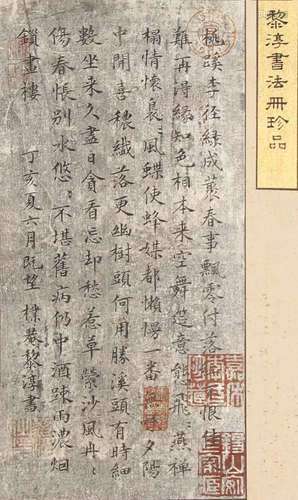 黎淳書法冊珍品
桃蹊李徑綠成叢春事飄零付落紅不恨佳
難再得緣知色相本来空舞筵意態飛燕禪
榻情懷裊風蝶使蜂媒都懶慢一番無夕陽
中開喜穠纖落更幽樹頭何用勝溪頭有時細
數坐来久盡日貪看忘却愁惹草縈沙風冉冉
傷春悵别水悠悠不堪舊病仍中酒踈雨濃烟
鎖畫樓
丁亥夏六月既望樸菴黎淳書